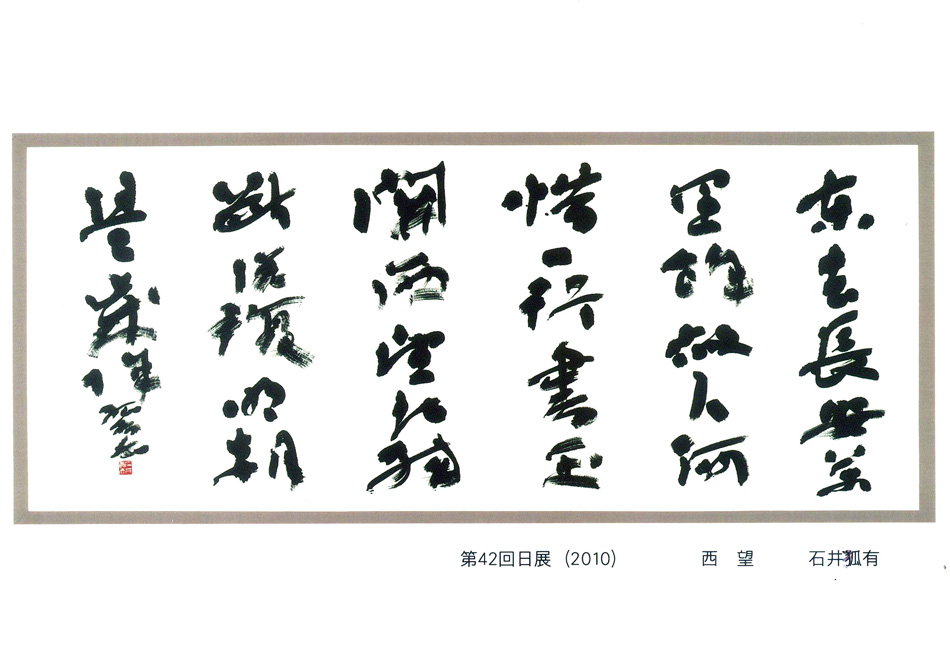 東去長安萬
里餘故人何
惜一行書玉
關西望堪腸
斷況復明朝
是歲除
第42回日展 (2010) 西 望 石井狐有